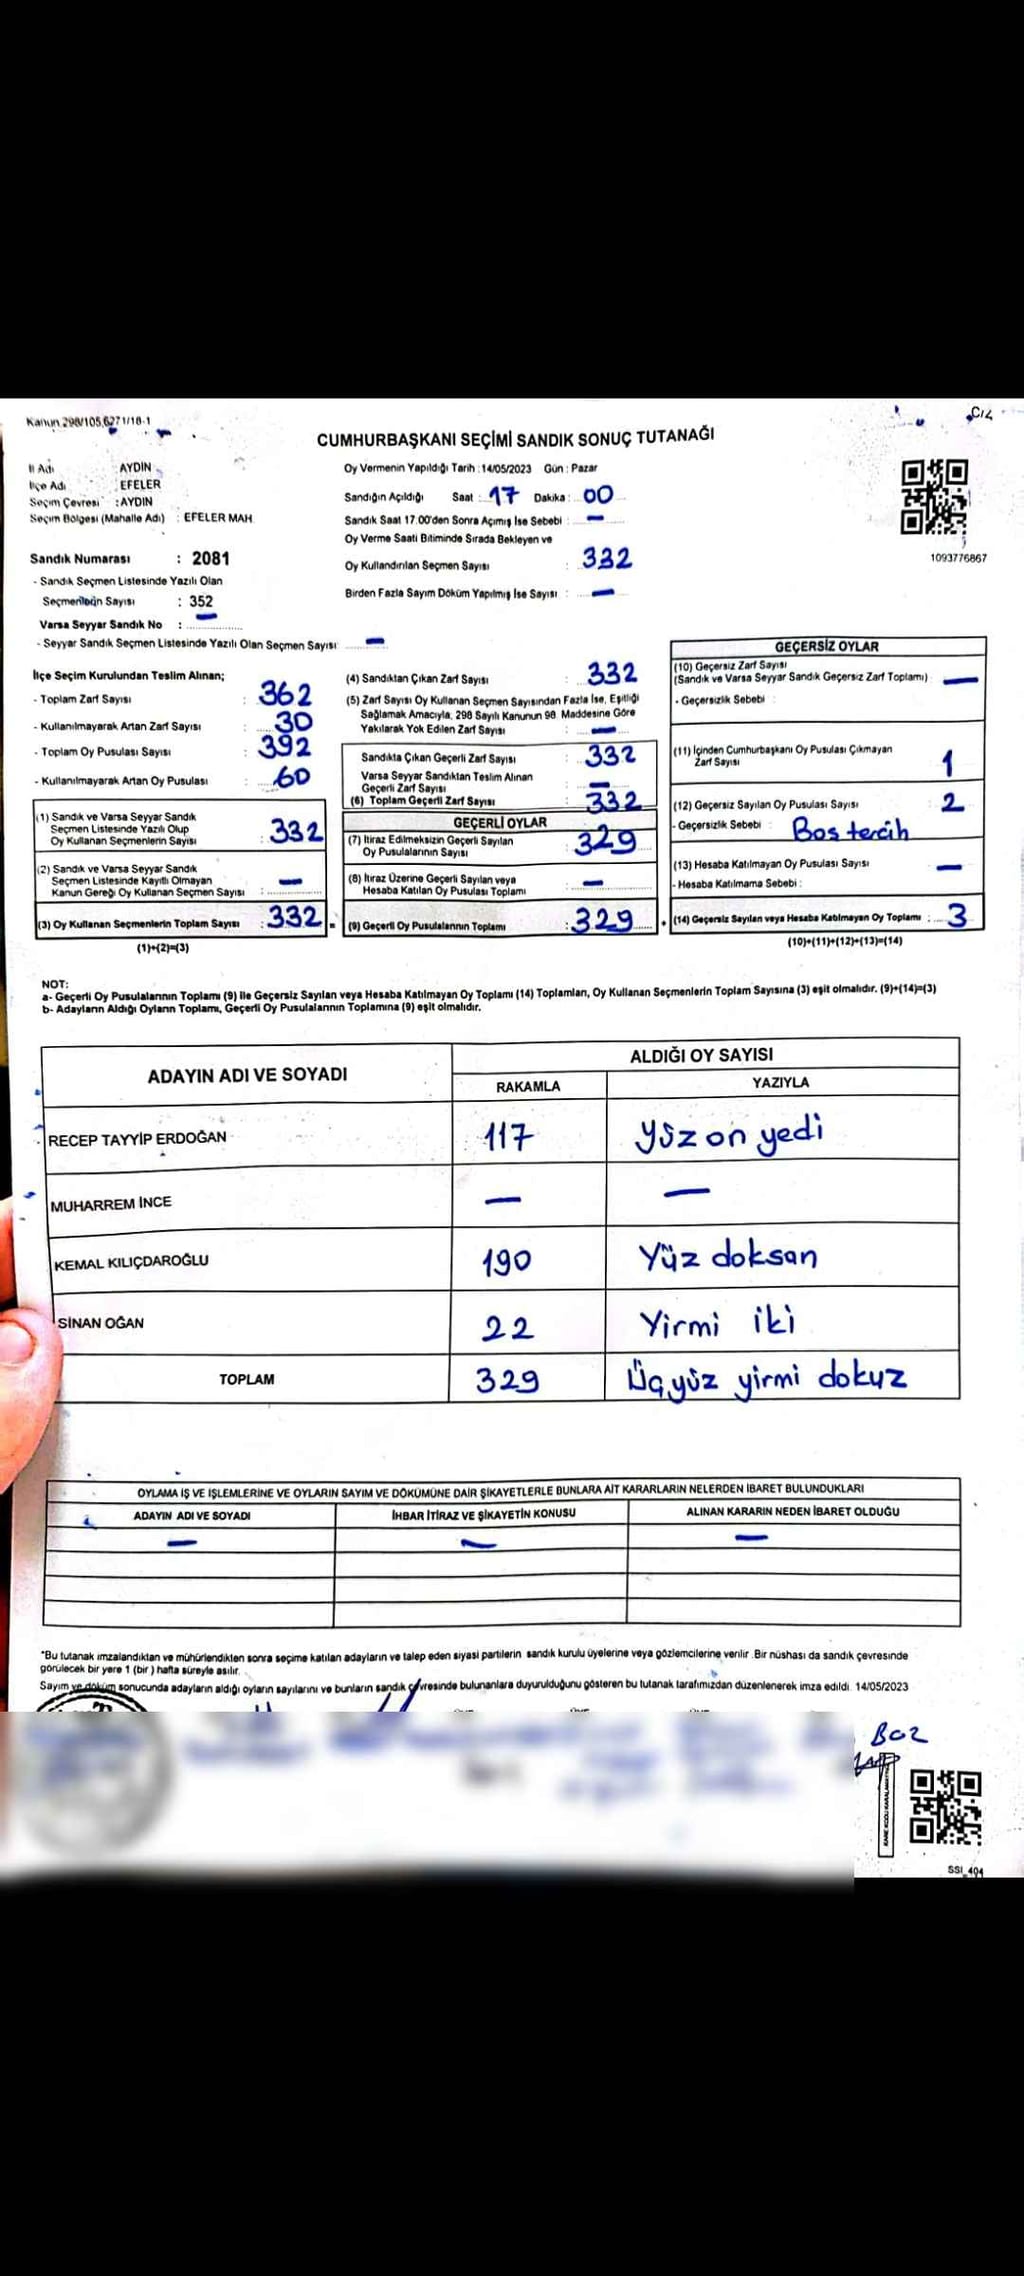 Kanun 298/105,6271/18-1
CUMHURBAŞKANI SEÇİMİ SANDIK SONUÇ TUTANAĞI
İl Adı : AYDIN
İlçe Adı : EFELER
Seçim Çevresi : AYDIN
Seçim Bölgesi (Mahalle Adı) : EFELER MAH
Sandık Numarası : 2081
- Sandık Seçmen Listesinde Yazılı Olan
Seçmenlerin Sayısı : 352
Varsa Seyyar Sandık No : —
- Seyyar Sandık Seçmen Listesinde Yazılı Olan Seçmen Sayısı: —
Oy Vermenin Yapıldığı Tarih : 14/05/2023 Gün : Pazar
Sandığın Açıldığı Saat : 17 Dakika : 00
Sandık Saat 17.00'den Sonra Açımış İse Sebebi : —
Oy Verme Saati Bitiminde Sırada Bekleyen ve
Oy Kullandırılan Seçmen Sayısı : 332
Birden Fazla Sayım Döküm Yapılmış İse Sayısı : —
1093776867
İlçe Seçim Kurulundan Teslim Alınan;
- Toplam Zarf Sayısı : 362
- Kullanılmayarak Artan Zarf Sayısı : 30
- Toplam Oy Pusulası Sayısı : 392
- Kullanılmayarak Artan Oy Pusulası : 60
(1) Sandık ve Varsa Seyyar Sandık
Seçmen Listesinde Yazılı Olup
Oy Kullanan Seçmenlerin Sayısı : 332
(2) Sandık ve Varsa Seyyar Sandık
Seçmen Listesinde Kayıtlı Olmayan
Kanun Gereği Oy Kullanan Seçmen Sayısı : —
(3) Oy Kullanan Seçmenlerin Toplam Sayısı : 332 =
(1)+(2)=(3)
(4) Sandıktan Çıkan Zarf Sayısı : 332
(5) Zarf Sayısı Oy Kullanan Seçmen Sayısından Fazla İse, Eşitliği
Sağlamak Amacıyla, 298 Sayılı Kanunun 98. Maddesine Göre
Yakılarak Yok Edilen Zarf Sayısı : —
Sandıkta Çıkan Geçerli Zarf Sayısı : 332
Varsa Seyyar Sandıktan Teslim Alınan
Geçerli Zarf Sayısı : —
(6) Toplam Geçerli Zarf Sayısı : 332
GEÇERLİ OYLAR
(7) İtiraz Edilmeksizin Geçerli Sayılan
Oy Pusulalarının Sayısı : 329
(8) İtiraz Üzerine Geçerli Sayılan veya
Hesaba Katılan Oy Pusulası Toplamı : —
(9) Geçerli Oy Pusulalarının Toplamı : 329 +
GEÇERSİZ OYLAR
(10) Geçersiz Zarf Sayısı
(Sandık ve Varsa Seyyar Sandık Geçersiz Zarf Toplamı) : —
- Geçersizlik Sebebi :
(11) İçinden Cumhurbaşkanı Oy Pusulası Çıkmayan
Zarf Sayısı : 1
(12) Geçersiz Sayılan Oy Pusulası Sayısı : 2
- Geçersizlik Sebebi : Bos tercih
(13) Hesaba Katılmayan Oy Pusulası Sayısı : —
- Hesaba Katılmama Sebebi :
(14) Geçersiz Sayılan veya Hesaba Katılmayan Oy Toplamı : 3
(10)+(11)+(12)+(13)=(14)
NOT:
a- Geçerli Oy Pusulalarının Toplamı (9) ile Geçersiz Sayılan veya Hesaba Katılmayan Oy Toplamı (14) Toplamları, Oy Kullanan Seçmenlerin Toplam Sayısına (3) eşit olmalıdır. (9)+(14)=(3)
b- Adayların Aldığı Oyların Toplamı, Geçerli Oy Pusulalarının Toplamına (9) eşit olmalıdır.
ADAYIN ADI VE SOYADI ALDIĞI OY SAYISI
RAKAMLA YAZIYLA
RECEP TAYYİP ERDOĞAN 117 Yüz on yedi
MUHARREM İNCE — —
KEMAL KILIÇDAROĞLU 190 Yüz doksan
SİNAN OĞAN 22 Yirmi iki
TOPLAM 329 Üçyüz yirmi dokuz
OYLAMA İŞ VE İŞLEMLERİNE VE OYLARIN SAYIM VE DÖKÜMÜNE DAİR ŞİKAYETLERLE BUNLARA AİT KARARLARIN NELERDEN İBARET BULUNDUKLARI
ADAYIN ADI VE SOYADI İHBAR İTİRAZ VE ŞİKAYETİN KONUSU ALINAN KARARIN NEDEN İBARET OLDUĞU
— — —
*Bu tutanak imzalandıktan ve mühürlendikten sonra seçime katılan adayların ve talep eden siyasi partilerin sandık kurulu üyelerine veya gözlemcilerine verilir. Bir nüshası da sandık çevresinde
görülecek bir yere 1 (bir) hafta süreyle asılır.
Sayım ve döküm sonucunda adayların aldığı oyların sayılarını ve bunların sandık çevresinde bulunanlara duyurulduğunu gösteren bu tutanak tarafımızdan düzenlenerek imza edildi. 14/05/2023
SSI_404